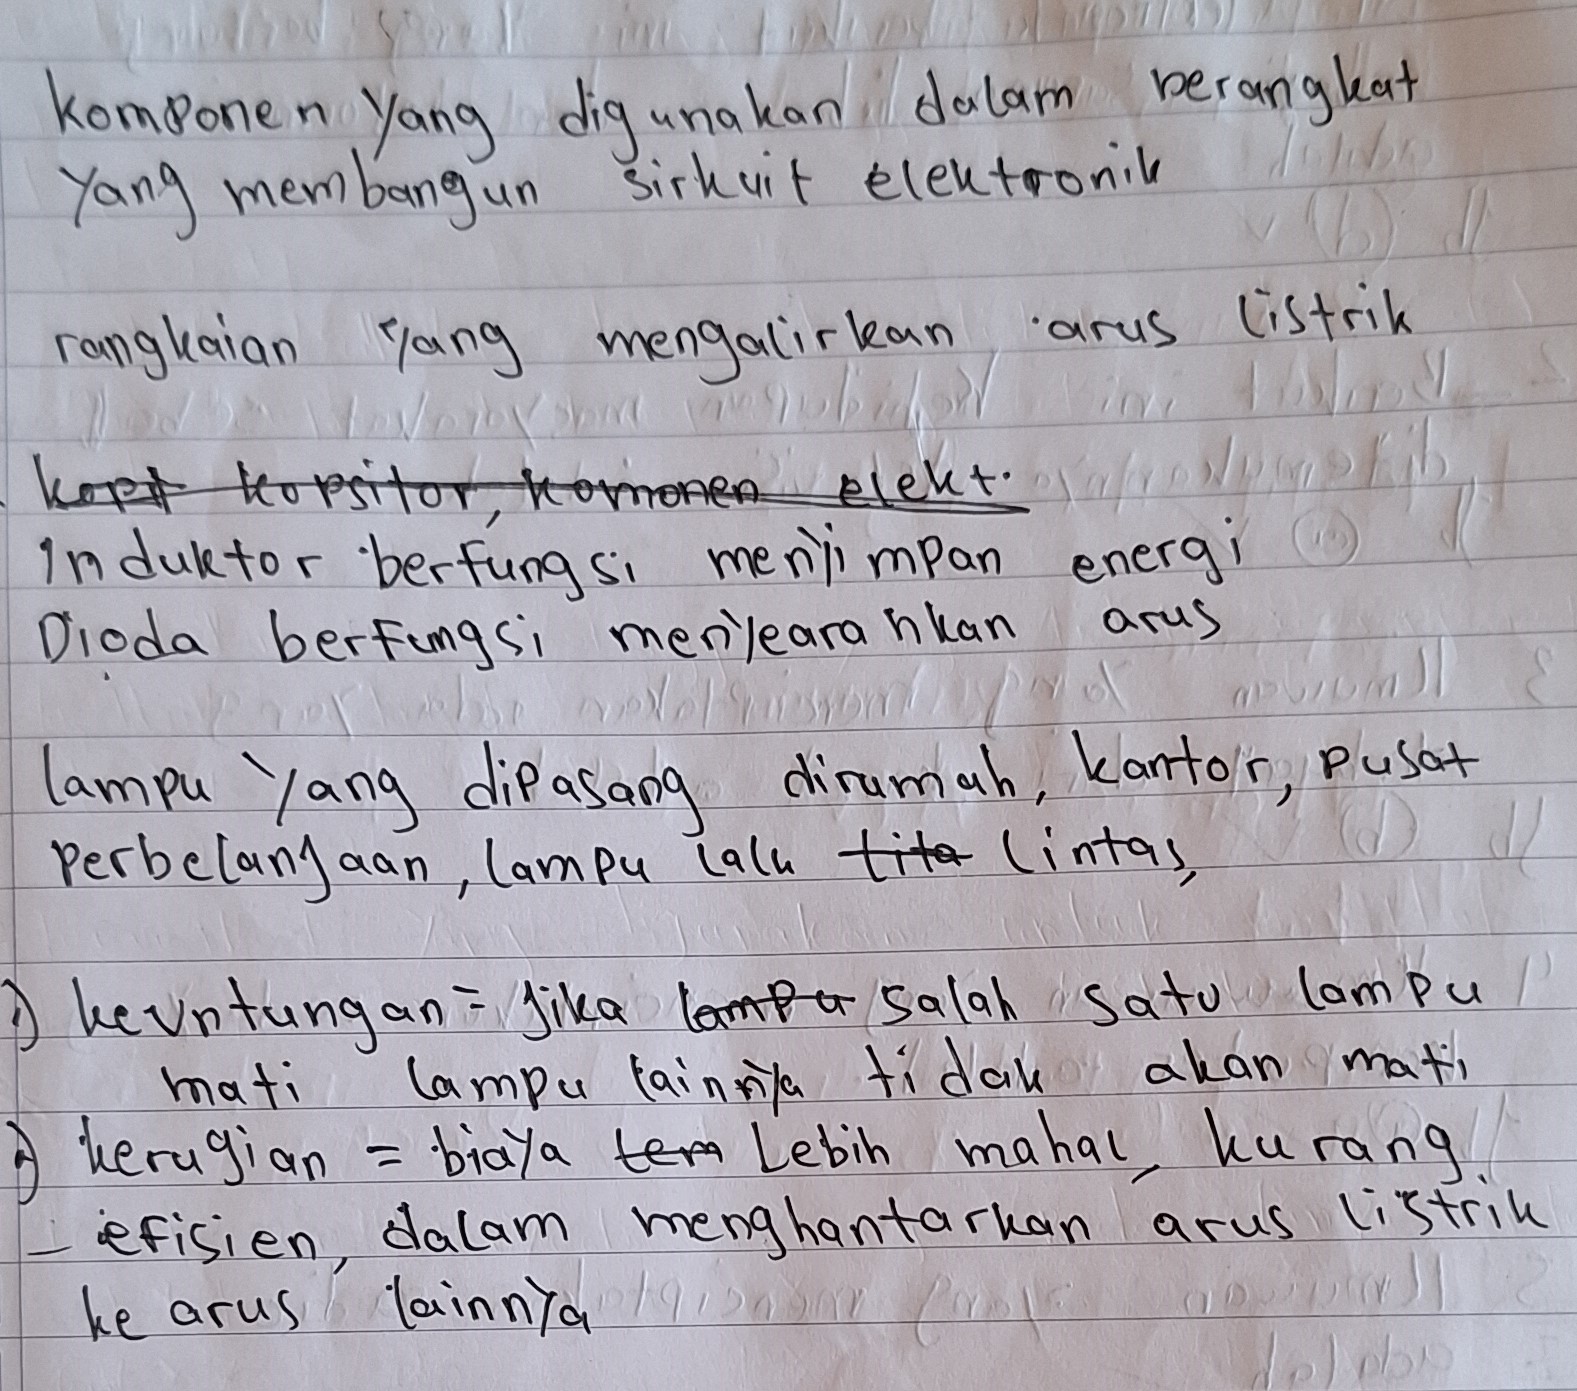 komponen yang digunakan dalam perangkat
yang membangun sirkuit elektronik
rangkaian yang mengalirkan arus listrik
Induktor berfungsi menyimpan energi
Dioda berfungsi menyearahkan arus
lampu yang dipasang dirumah, kantor, pusat
perbelanjaan, lampu lalu lintas,
1) keuntungan = jika salah satu lampu
mati lampu lainnya tidak akan mati
2) kerugian = biaya lebih mahal, kurang
- efisien, dalam menghantarkan arus listrik
ke arus lainnya